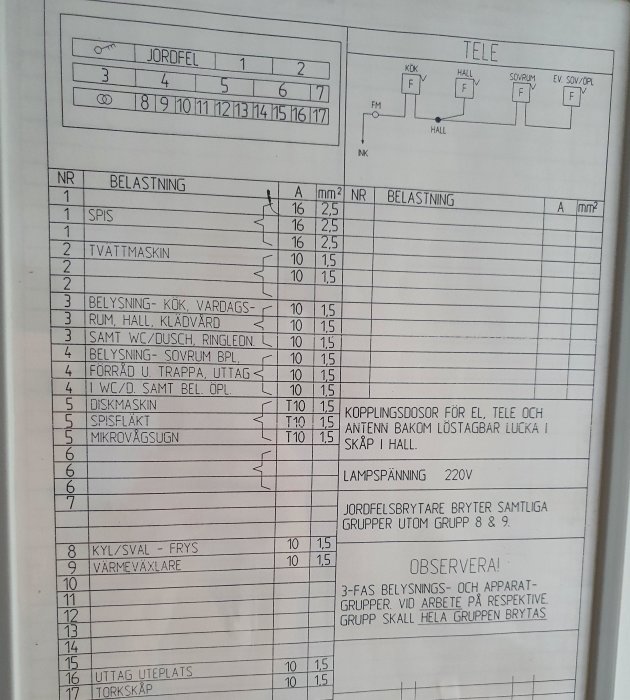 JORDFEL 1 2
3 4 5 6 7
8 9 10 11 12 13 14 15 16 17
TELE
KÖK HALL SOVRUM EV. SOV/ÖPL
F F F F
FM
HALL
INK
NR BELASTNING A mm²
1 16 2,5
1 SPIS 16 2,5
1 16 2,5
2 TVÄTTMASKIN 10 1,5
2 10 1,5
2
3 BELYSNING- KÖK, VARDAGS- 10 1,5
3 RUM, HALL, KLÄDVÅRD 10 1,5
3 SAMT WC/DUSCH, RINGLEDN. 10 1,5
4 BELYSNING- SOVRUM BPL, 10 1,5
4 FÖRRÅD U. TRAPPA, UTTAG 10 1,5
4 I WC/D. SAMT BEL. ÖPL. 10 1,5
5 DISKMASKIN T10 1,5
5 SPISFLÄKT T10 1,5
5 MIKROVÅGSUGN T10 1,5
6
6
6
7
8 KYL/SVAL - FRYS 10 1,5
9 VÄRMEVÄXLARE 10 1,5
10
11
12
13
14
15
16 UTTAG UTEPLATS 10 1,5
17 TORKSKÅP 10 1,5
NR BELASTNING A mm²
KOPPLINGSDOSOR FÖR EL, TELE OCH
ANTENN BAKOM LÖSTAGBAR LUCKA I
SKÅP I HALL.
LAMPSPÄNNING 220V
JORDFELSBRYTARE BRYTER SAMTLIGA
GRUPPER UTOM GRUPP 8 & 9.
OBSERVERA!
3-FAS BELYSNINGS- OCH APPARAT-
GRUPPER. VID ARBETE PÅ RESPEKTIVE
GRUPP SKALL HELA GRUPPEN BRYTAS